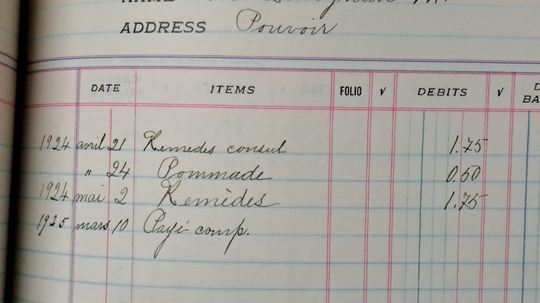 NAME
ADDRESS Pouvoir
DATE ITEMS FOLIO √ DEBITS √
1924 avril 21 Remedes consul 1.75
" 24 Pommade 0.50
1924 mai 2 Remèdes 1.75
1925 mars 10 Payé comp.